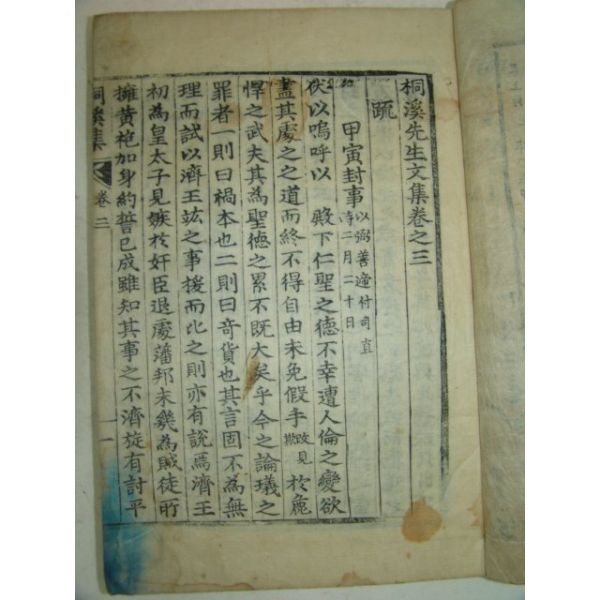 桐溪先生文集卷之三
疏
甲寅封事 以弼善遞付司直
時二月二十日
伏以嗚呼以 殿下仁聖之德不幸遭人倫之變欲
盡其處之之道而終不得自由未免假手 於麁
悍之武夫其為聖德之累不既大矣乎今之論㼁之
罪者一則曰禍本也二則曰奇貨也其言固不為無
理而試以濟王竑之事援而比之則亦有說焉濟王
初為皇太子見嫉於奸臣退處藩邦未幾為賊徒所
擁黄袍加身約誓已成雖知其事之不濟旋有討平
桐溪集 卷三 一